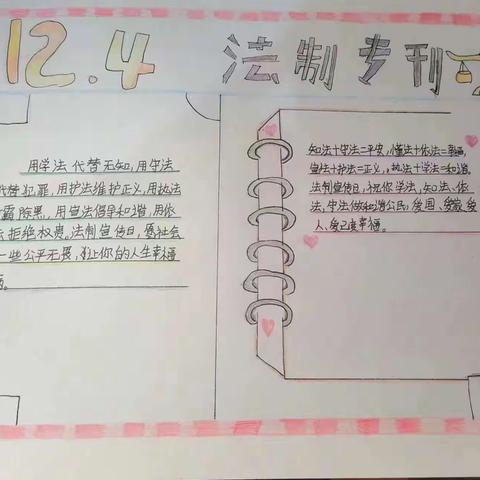 12.4 法制专刊
用学法代替无知,用守法
代替犯罪,用护法维护正义,用执法
霸除黑,用宣法倡导和谐,用依
法拒绝权贵。法制宣传日,愿社会
一些公平无畏,让你的人生幸福
知法十守法二平安,懂法十依法二幸福,
宣法十护法二正义,执法十学法二和谐,
法制宣传日,祝你学法,知法、依
法,守法做和谐公民,爱国、爱家、爱
人、爱己度幸福。